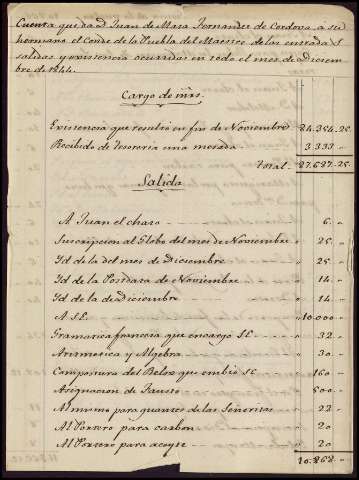 Cuenta que da Dn Juan de Mesa Fernandez de Cordova a su
hermano el Conde de la Puebla del Maestre de las entradas
salidas y existencia ocurridas en todo el mes de Diciem
bre de 1844.
Cargo de mrs.
Existencia que resultó en fin de Noviembre 24.354.25
Recibido de Tesoreria una mesada 3.333
Total 27.687.25
Salida
A Juan el charo 6
Suscripcion al Globo del mes de Noviembre 25
Id de la del mes de diciembre 25
Id de la Posdata de Noviembre 14
Id de la de diciembre 14
A S.E. 10.000
Gramatica francesa que encargo S.E. 32
Aritmetica y Algebra 30
Compostura del Relox que embio S.E. 160
Asignacion de Fausto 500
Al mismo para guantes de las Señoritas 22
Al Portero para carbon 20
Al Portero para aceyte 20
10.868